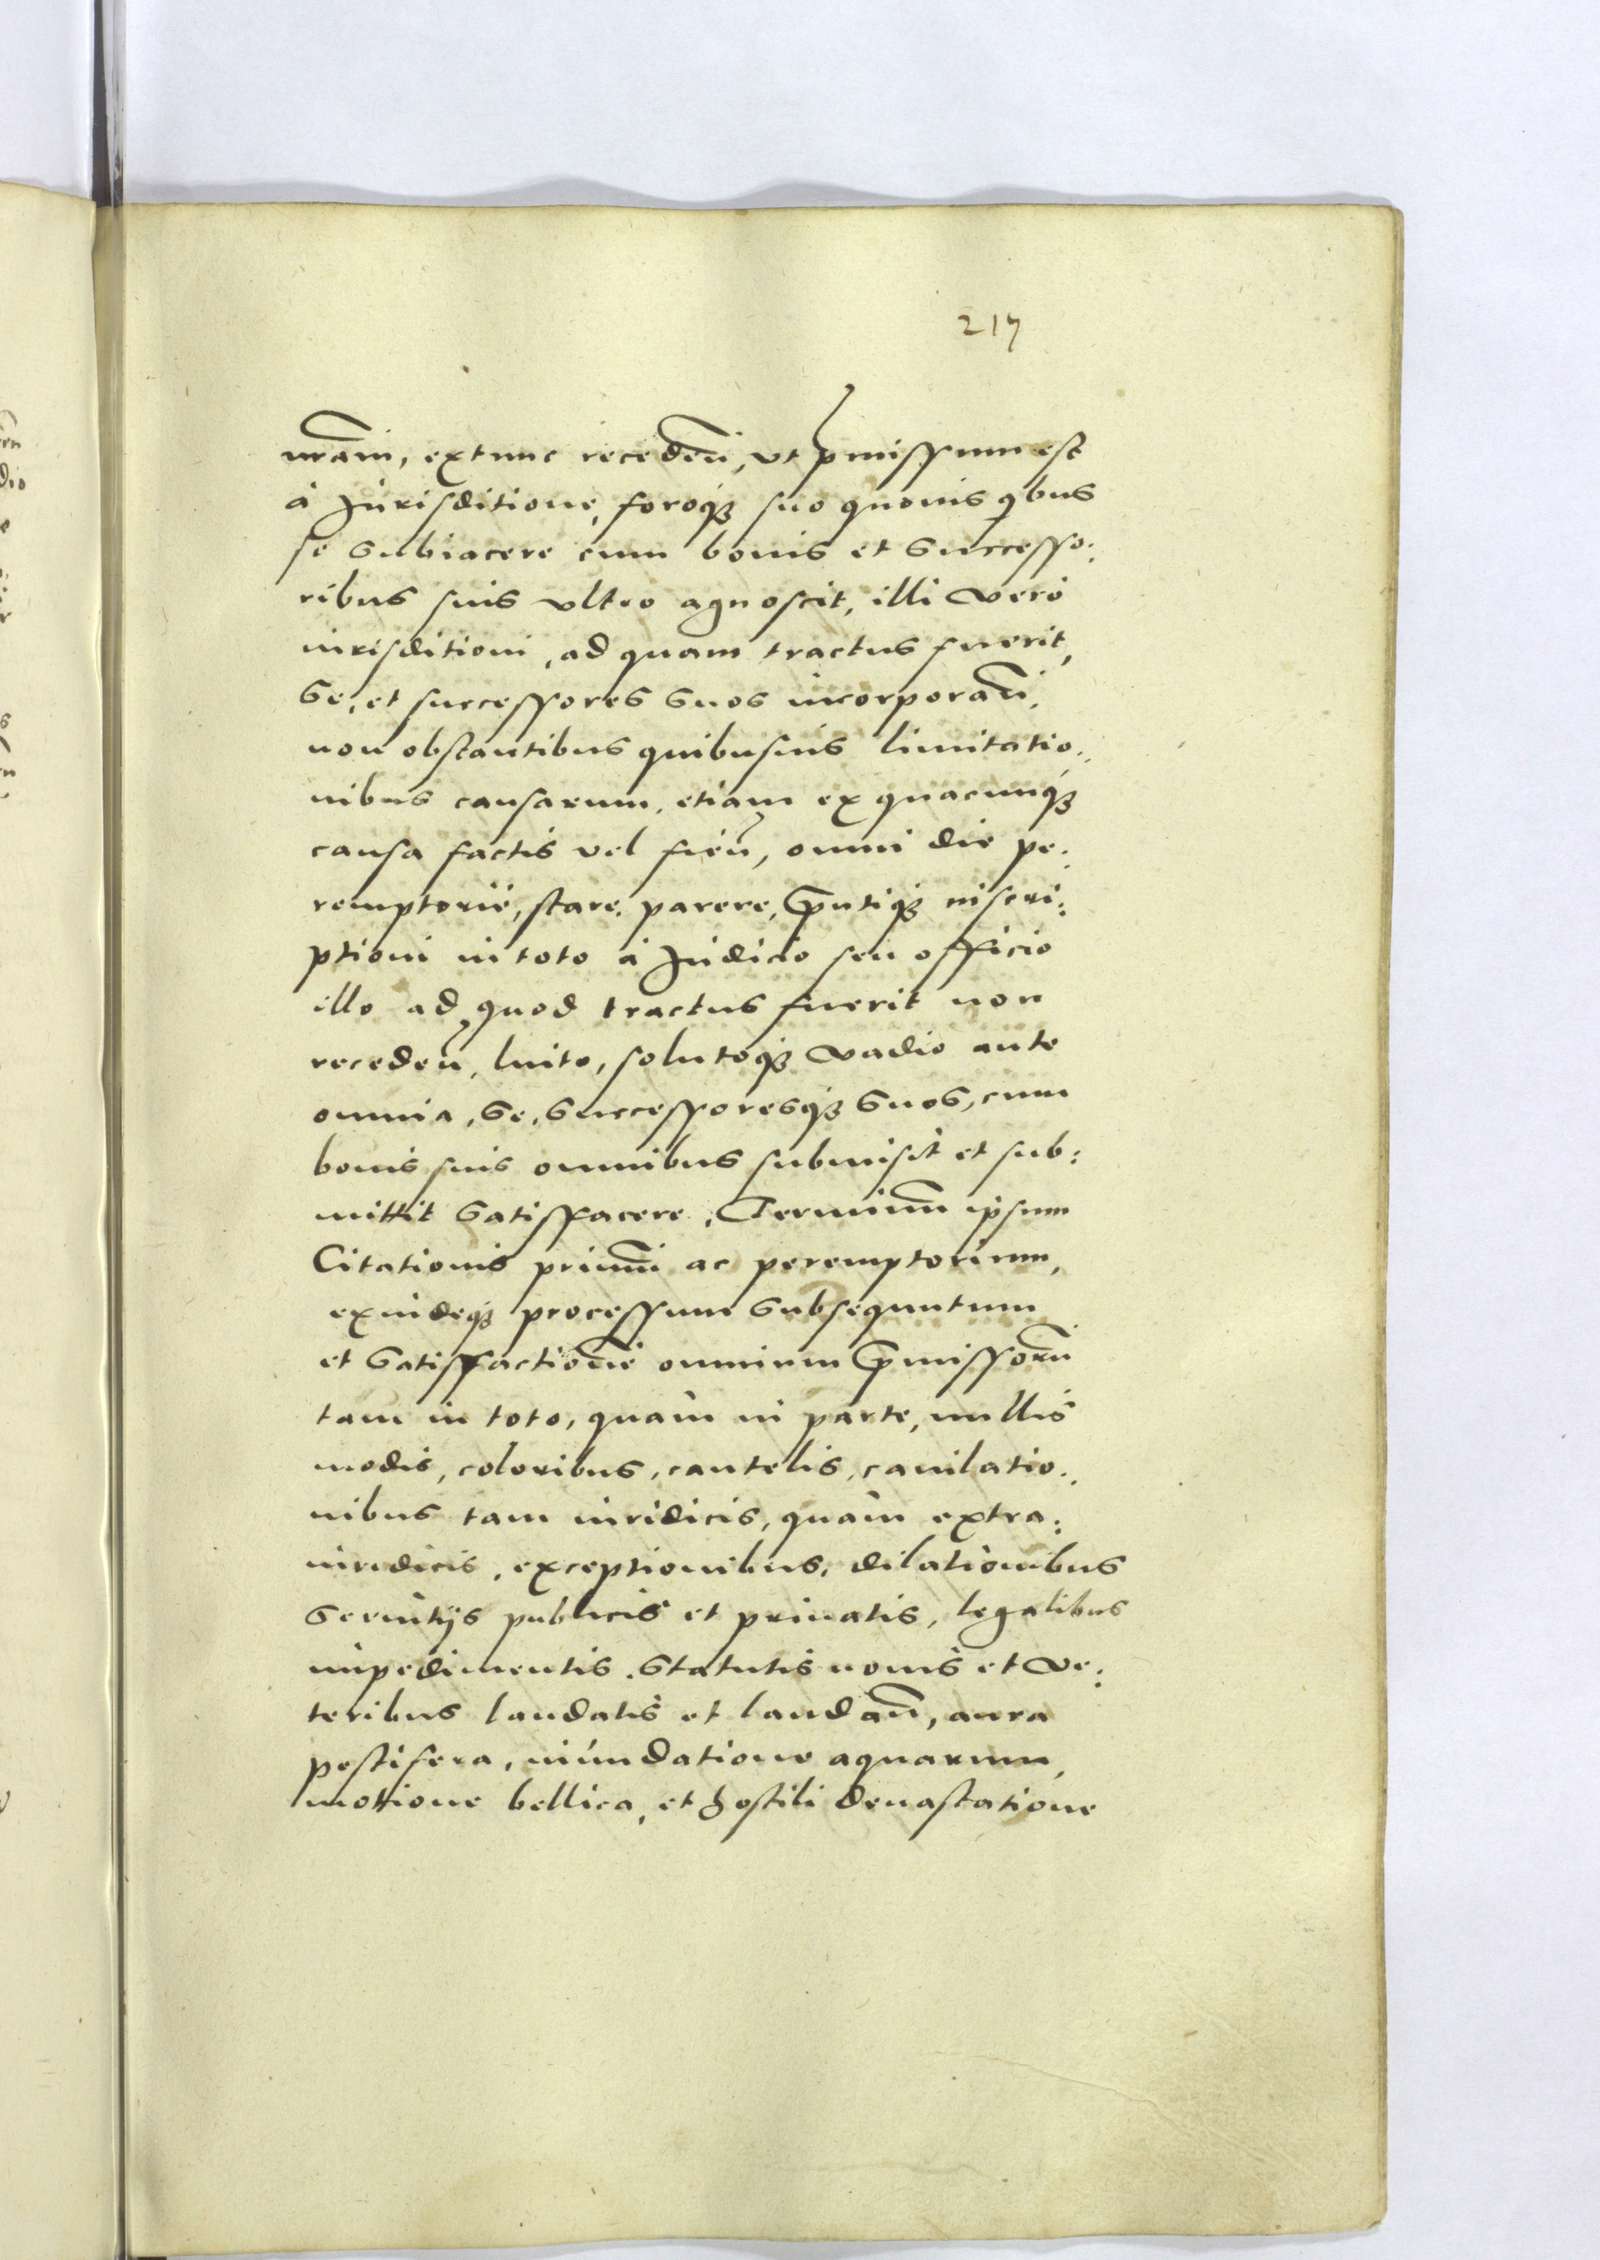 217
nram, extunc receden, ut pmissum est
à Jurisditione, foroq3 suo quovis qbus
se subiacere cum bonis et successo:
ribus suis ultro agnoscit, illi vero
iurisditioni, ad quam tractus fuerit,
se, et successores suos incorporan,
non obstantibus quibusuis limitatio:
nibus causarum, etiam ex quacunq3
causa factis vel fien, omni die pe:
remptorie, stare, parere, pntiq3 inscri:
ptioni in toto à Judicio seu officio
illo ad quod tractus fuerit non
receden, luito, solutoq3 vadio ante
omnia, se, successoresq3 suos, cum
bonis suis omnibus submisit et sub:
mittit satisfacere, Terminum ipsum
Citationis primum ac peremptorium,
exindeq3 processum subsequutum
et satisfactionem omnium pmissorum
tam in toto, quam in parte, nullis
modis, coloribus, cautelis, cauilatio:
nibus tam iuridicis, quam extra:
iuridicis, exceptionibus, dilationibus
seruitijs publicis et priuatis, legalibus
impedimentis, statutis nouis et ve:
teribus laudatis et laudan, aura
pestifera, inundatione aquarum,
mottione bellica, et hostili deuastatione